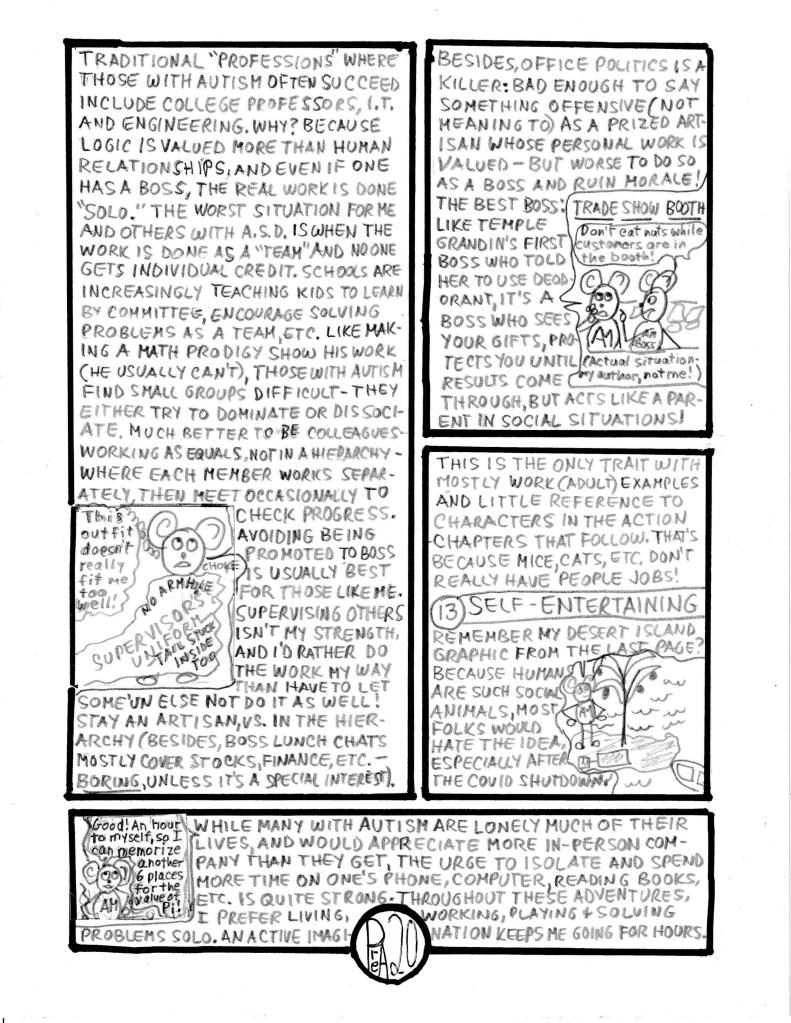 TRADITIONAL "PROFESSIONS" WHERE
THOSE WITH AUTISM OFTEN SUCCEED
INCLUDE COLLEGE PROFESSORS, I.T.
AND ENGINEERING. WHY? BECAUSE
LOGIC IS VALUED MORE THAN HUMAN
RELATIONSHIPS, AND EVEN IF ONE
HAS A BOSS, THE REAL WORK IS DONE
"SOLO." THE WORST SITUATION FOR ME
AND OTHERS WITH A.S.D. IS WHEN THE
WORK IS DONE AS A "TEAM" AND NO ONE
GETS INDIVIDUAL CREDIT. SCHOOLS ARE
INCREASINGLY TEACHING KIDS TO LEARN
BY COMMITTEE, ENCOURAGE SOLVING
PROBLEMS AS A TEAM, ETC. LIKE MAK-
ING A MATH PRODIGY SHOW HIS WORK
(HE USUALLY CAN'T), THOSE WITH AUTISM
FIND SMALL GROUPS DIFFICULT - THEY
EITHER TRY TO DOMINATE OR DISSOCI-
ATE. MUCH BETTER TO BE COLLEAGUES-
WORKING AS EQUALS, NOT IN A HIERARCHY -
WHERE EACH MEMBER WORKS SEPAR-
ATELY, THEN MEET OCCASIONALLY TO
CHECK PROGRESS.
AVOIDING BEING
PROMOTED TO BOSS
IS USUALLY BEST
FOR THOSE LIKE ME.
SUPERVISING OTHERS
ISN'T MY STRENGTH,
AND I'D RATHER DO
THE WORK MY WAY
THAN HAVE TO LET
SOME'UN ELSE NOT DO IT AS WELL!
STAY AN ARTISAN, VS. IN THE HIER-
ARCHY (BESIDES, BOSS LUNCH CHATS
MOSTLY COVER STOCKS, FINANCE, ETC. -
BORING, UNLESS IT'S A SPECIAL INTEREST).
This
outfit
doesn't
really
fit me
too
well!
CHOKE
NO ARMHOLE
SUPERVISOR'S
UNIFORM
TAIL STUCK
INSIDE
TOO
BESIDES, OFFICE POLITICS IS A
KILLER: BAD ENOUGH TO SAY
SOMETHING OFFENSIVE (NOT
MEANING TO) AS A PRIZED ART-
ISAN WHOSE PERSONAL WORK IS
VALUED - BUT WORSE TO DO SO
AS A BOSS AND RUIN MORALE!
THE BEST BOSS:
LIKE TEMPLE
GRANDIN'S FIRST
BOSS WHO TOLD
HER TO USE DEOD-
ORANT, IT'S A
BOSS WHO SEES
YOUR GIFTS, PRO-
TECTS YOU UNTIL
RESULTS COME
THROUGH, BUT ACTS LIKE A PAR-
ENT IN SOCIAL SITUATIONS!
TRADE SHOW BOOTH
Don't eat nuts while
customers are in
the booth!
AM
AM
BOSS
(Actual situation-
my author, not me!)
THIS IS THE ONLY TRAIT WITH
MOSTLY WORK (ADULT) EXAMPLES
AND LITTLE REFERENCE TO
CHARACTERS IN THE ACTION
CHAPTERS THAT FOLLOW. THAT'S
BECAUSE MICE, CATS, ETC. DON'T
REALLY HAVE PEOPLE JOBS!
13 SELF-ENTERTAINING
REMEMBER MY DESERT ISLAND
GRAPHIC FROM THE LAST PAGE?
BECAUSE HUMANS
ARE SUCH SOCIAL
ANIMALS, MOST
FOLKS WOULD
HATE THE IDEA,
ESPECIALLY AFTER
THE COVID SHUTDOWN.
AM
Good! An hour
to myself, so I
can memorize
another
6 places
for the
value of
Pi!
AM
WHILE MANY WITH AUTISM ARE LONELY MUCH OF THEIR
LIVES, AND WOULD APPRECIATE MORE IN-PERSON COM-
PANY THAN THEY GET, THE URGE TO ISOLATE AND SPEND
MORE TIME ON ONE'S PHONE, COMPUTER, READING BOOKS,
ETC. IS QUITE STRONG. THROUGHOUT THESE ADVENTURES,
I PREFER LIVING, WORKING, PLAYING + SOLVING
PROBLEMS SOLO. AN ACTIVE IMAGI-NATION KEEPS ME GOING FOR HOURS.